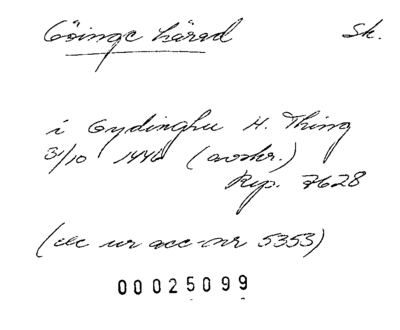 Göinge härad Sk.
i Gydinghu H. Thing
3/10 1446 (avskr.)
Rep. 7628
(ec ur acc-nr 5353)
00025099